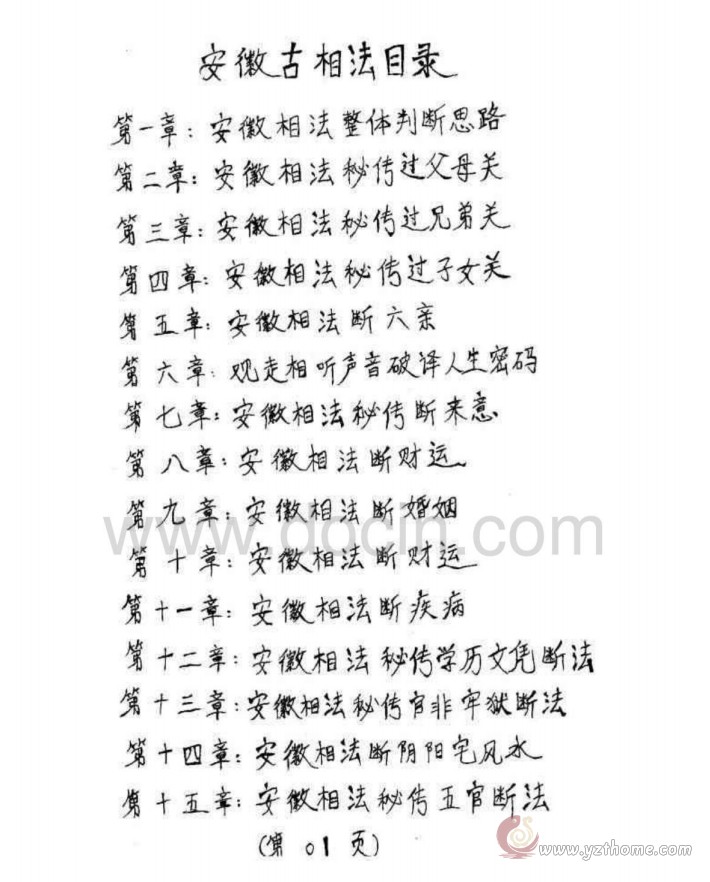 安徽古相法目录
第一章：安徽相法整体判断思路
第二章：安徽相法秘传过父母关
第三章：安徽相法秘传过兄弟关
第四章：安徽相法秘传过子女关
第五章：安徽相法断六亲
第六章：观走相听声音破译人生密码
第七章：安徽相法秘传断来意
第八章：安徽相法断财运
第九章：安徽相法断婚姻
www.docin.com
第十章：安徽相法断财运
第十一章：安徽相法断疾病
第十二章：安徽相法秘传学历文凭断法
第十三章：安徽相法秘传官非牢狱断法
第十四章：安徽相法断阴阳宅风水
第十五章：安徽相法秘传五官断法
(第01页)
www.yzthome.com